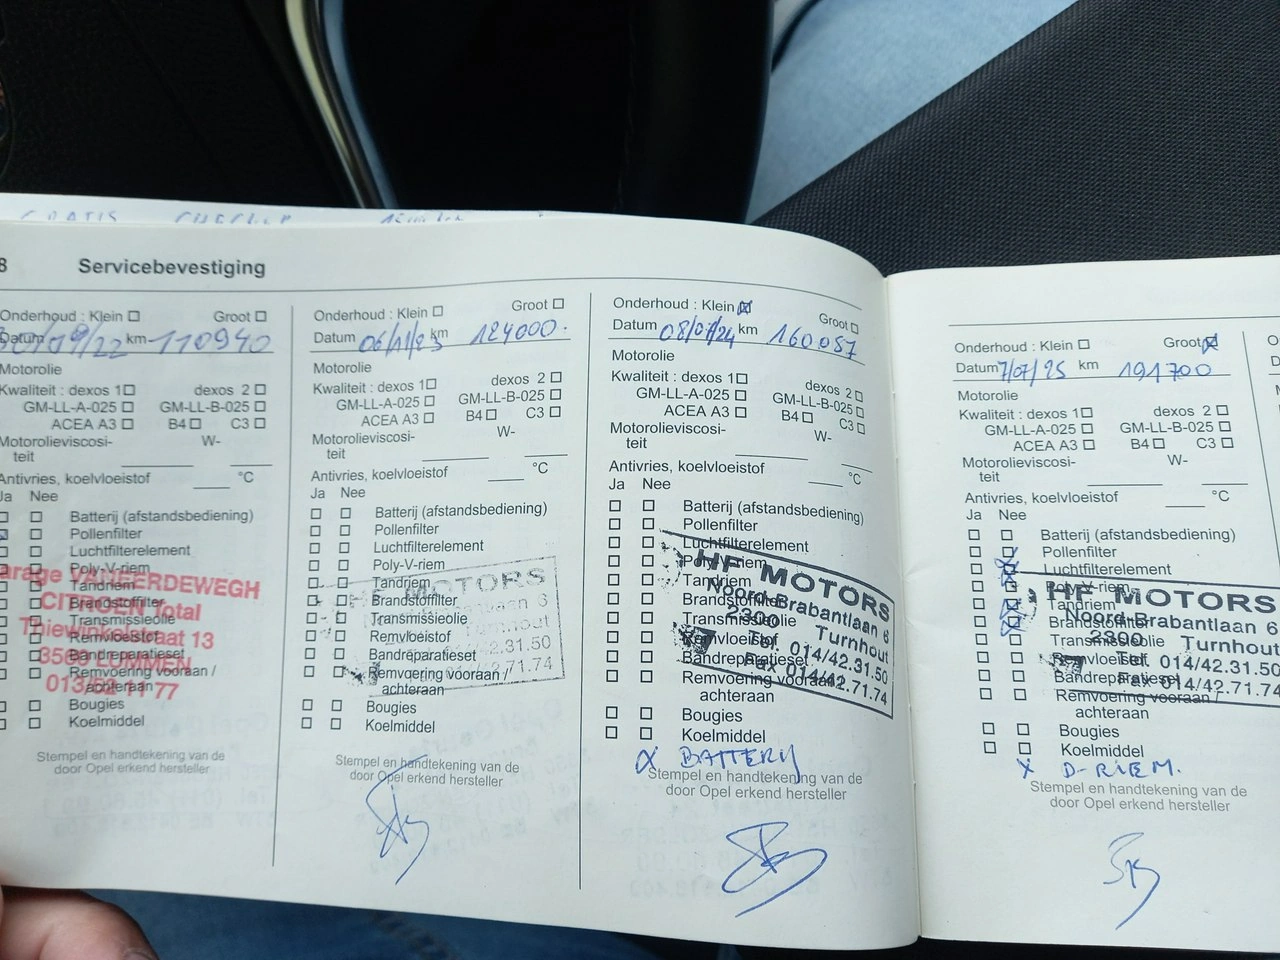 GRATIS CHECKUP
8 Servicebevestiging
Onderhoud : Klein ☐ Groot ☐
Datum 30/09/22 km 110940
Motorolie
Kwaliteit : dexos 1 ☐ dexos 2 ☐
GM-LL-A-025 ☐ GM-LL-B-025 ☐
ACEA A3 ☐ B4 ☐ C3 ☐
Motorolieviscosi-
teit W-
Antivries, koelvloeistof °C
Ja Nee
Batterij (afstandsbediening)
Pollenfilter
Luchtfilterelement
Poly-V-riem
Tandriem
Brandstoffilter
Transmissieolie
Remvloeistof
Bandreparatieset
Remvoering vooraan /
achteraan
Bougies
Koelmiddel
arage VANEERDEWEGH
CITROEN Total
Thiewinkelstraat 13
3560 LUMMEN
013/52 11 77
Stempel en handtekening van de
door Opel erkend hersteller
Onderhoud : Klein ☐ Groot ☐
Datum 06/11/23 km 124000.
Motorolie
Kwaliteit : dexos 1 ☐ dexos 2 ☐
GM-LL-A-025 ☐ GM-LL-B-025 ☐
ACEA A3 ☐ B4 ☐ C3 ☐
Motorolieviscosi-
teit W-
Antivries, koelvloeistof °C
Ja Nee
Batterij (afstandsbediening)
Pollenfilter
Luchtfilterelement
Poly-V-riem
Tandriem
Brandstoffilter
Transmissieolie
Remvloeistof
Bandreparatieset
Remvoering vooraan /
achteraan
Bougies
Koelmiddel
HF MOTORS
Brabantlaan 6
Turnhout
014/42.31.50
014/42.71.74
Stempel en handtekening van de
door Opel erkend hersteller
Onderhoud : Klein ☒ Groot ☐
Datum 08/07/24 km 160057
Motorolie
Kwaliteit : dexos 1 ☐ dexos 2 ☐
GM-LL-A-025 ☐ GM-LL-B-025 ☐
ACEA A3 ☐ B4 ☐ C3 ☐
Motorolieviscosi-
teit W-
Antivries, koelvloeistof °C
Ja Nee
Batterij (afstandsbediening)
Pollenfilter
Luchtfilterelement
Poly-V-riem
Tandriem
Brandstoffilter
Transmissieolie
Remvloeistof
Bandreparatieset
Remvoering vooraan /
achteraan
Bougies
Koelmiddel
HF MOTORS
Noord-Brabantlaan 6
2300 Turnhout
Tel. 014/42.31.50
Fax 014/42.71.74
X BATTERY
Stempel en handtekening van de
door Opel erkend hersteller
Onderhoud : Klein ☐ Groot ☒
Datum 7/07/25 km 191700
Motorolie
Kwaliteit : dexos 1 ☐ dexos 2 ☐
GM-LL-A-025 ☐ GM-LL-B-025 ☐
ACEA A3 ☐ B4 ☐ C3 ☐
Motorolieviscosi-
teit W-
Antivries, koelvloeistof °C
Ja Nee
Batterij (afstandsbediening)
Pollenfilter
Luchtfilterelement
Poly-V-riem
Tandriem
Brandstoffilter
Transmissieolie
Remvloeistof
Bandreparatieset
Remvoering vooraan /
achteraan
Bougies
Koelmiddel
HF MOTORS
Noord-Brabantlaan 6
2300 Turnhout
Tel. 014/42.31.50
Fax 014/42.71.74
X D-RIEM.
Stempel en handtekening van de
door Opel erkend hersteller